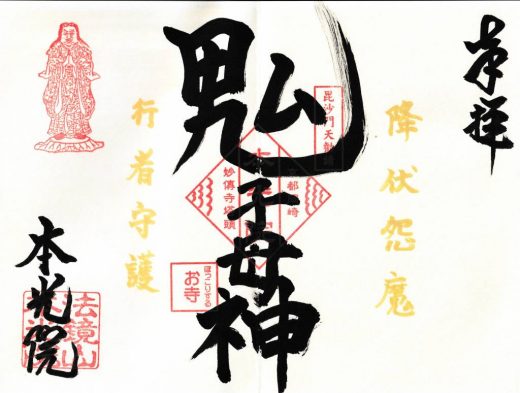 奉拝
降伏怨魔
毘沙門天
鬼子母神
妙傳寺塔頭
ほっこりする
お寺
行者守護
本光院
法鏡山